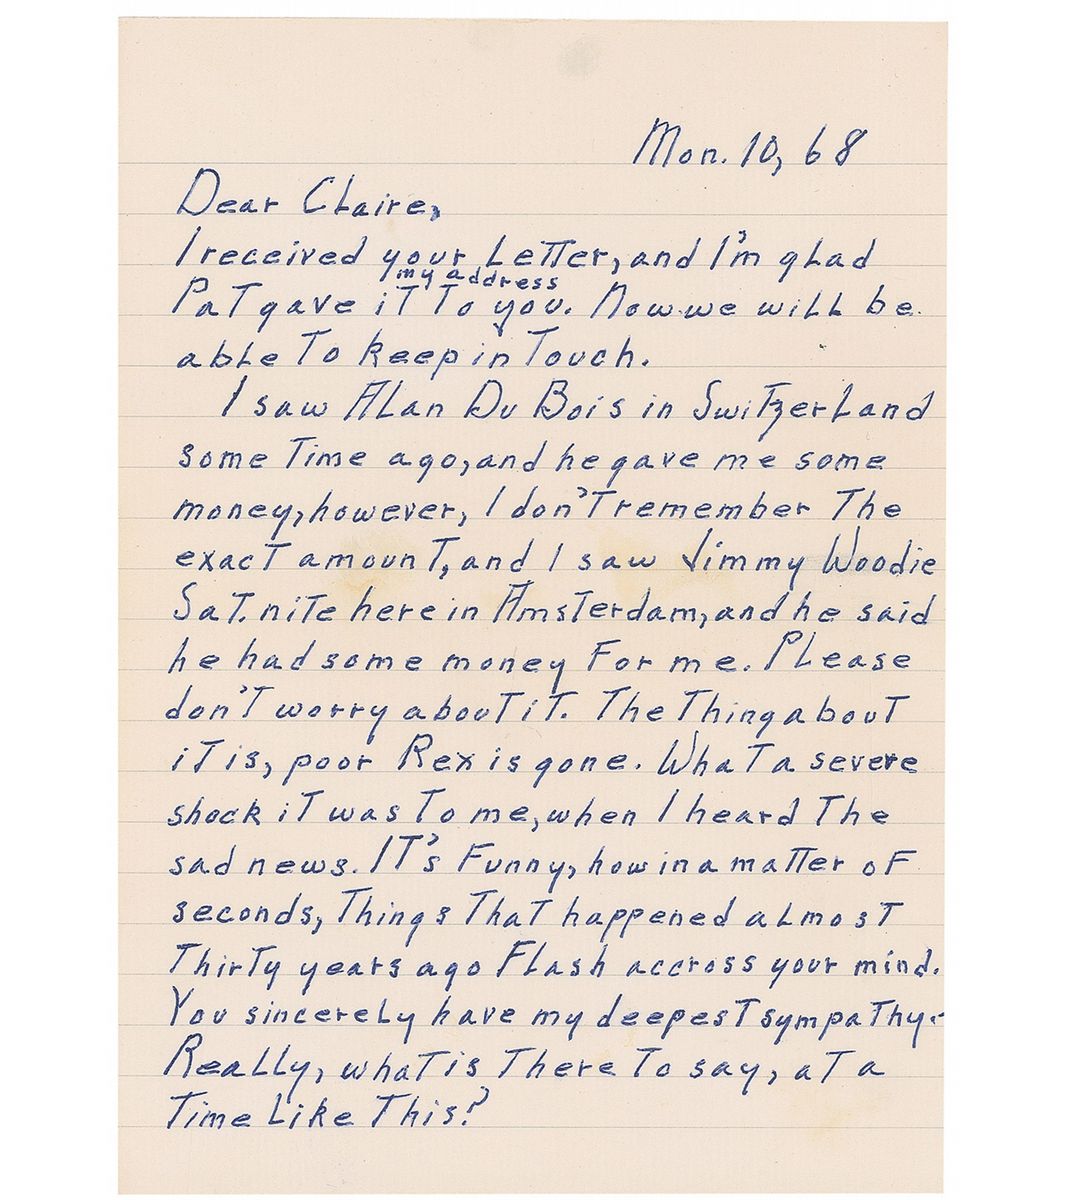 Mon. 10, 68
Dear Claire,
I received your Letter, and I'm glad
my address
Pat gave it to you. Now we will be
able to keep in touch.
I saw Alan Du Bois in Switzerland
some time ago, and he gave me some
money, however, I don't remember the
exact amount, and I saw Jimmy Woodie
Sat. nite here in Amsterdam, and he said
he had some money for me. Please
don't worry about it. The thing about
it is, poor Rex is gone. What a severe
shock it was to me, when I heard the
sad news. It's funny, how in a matter of
seconds, things that happened almost
thirty years ago flash accross your mind.
You sincerely have my deepest sympathy.
Really, what is there to say, at a
time like this?